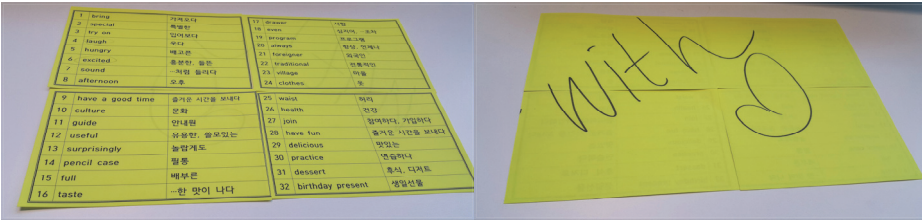 1 bring 가져오다
2 special 특별한
3 try on 입어보다
4 laugh 웃다
5 hungry 배고픈
6 excited 흥분한, 들뜬
7 sound …처럼 들리다
8 afternoon 오후
9 have a good time 즐거운 시간을 보내다
10 culture 문화
11 guide 안내원
12 useful 유용한, 쓸모있는
13 surprisingly 놀랍게도
14 pencil case 필통
15 full 배부른
16 taste …한 맛이 나다
17 drawer 서랍
18 even 심지어, …조차
19 program 프로그램
20 always 항상, 언제나
21 foreigner 외국인
22 traditional 전통적인
23 village 마을
24 clothes 옷
25 waist 허리
26 health 건강
27 join 참여하다, 가입하다
28 have fun 즐거운 시간을 보내다
29 delicious 맛있는
30 practice 연습하다
31 dessert 후식, 디저트
32 birthday present 생일선물
with